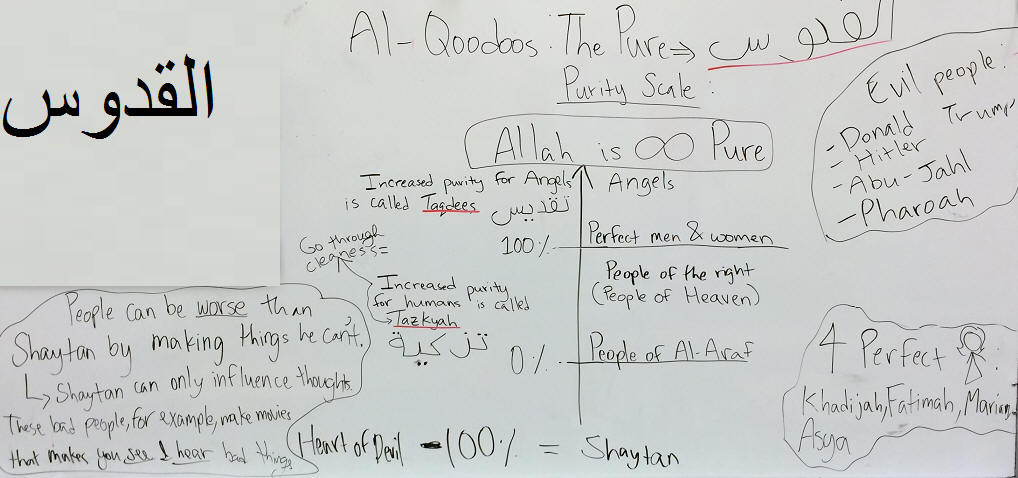 Al-Qoodoos: The Pure ⇒ القدوس
Purity Scale:
القدوس
Allah is ∞ Pure
Increased purity for Angels
is called Taqdees
تقديس
Angels
100%
Perfect men & women
People of the right
(People of Heaven)
Go through
cleaness=
Increased purity
for humans is called
→ Tazkyah
تزكية
0%
People of Al-Araf
Heart of Devil -100% = Shaytan
Evil people:
- Donald Trump
- Hitler
- Abu-Jahl
- Pharoah
People can be worse than
Shaytan by making things he can't.
↳ Shaytan can only influence thoughts.
These bad people, for example, make movies
that makes you see & hear bad things
4 Perfect
Khadijah, Fatimah, Mariam
Asya